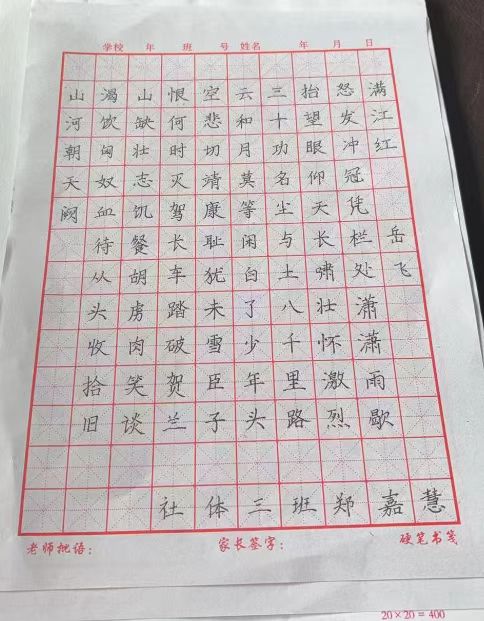 学校 年 班 号 姓名 年 月 日
满江红 岳飞
怒发冲冠凭栏处潇潇雨歇
抬望眼仰天长啸壮怀激烈
三十功名尘与土八千里路
云和月莫等闲白了少年头
空悲切靖康耻犹未雪臣子
恨何时灭驾长车踏破贺兰
山缺壮志饥餐胡虏肉笑谈
渴饮匈奴血待从头收拾旧
山河朝天阙
社体三班郑嘉慧
老师批语： 家长签字： 硬笔书笺
20×20=400